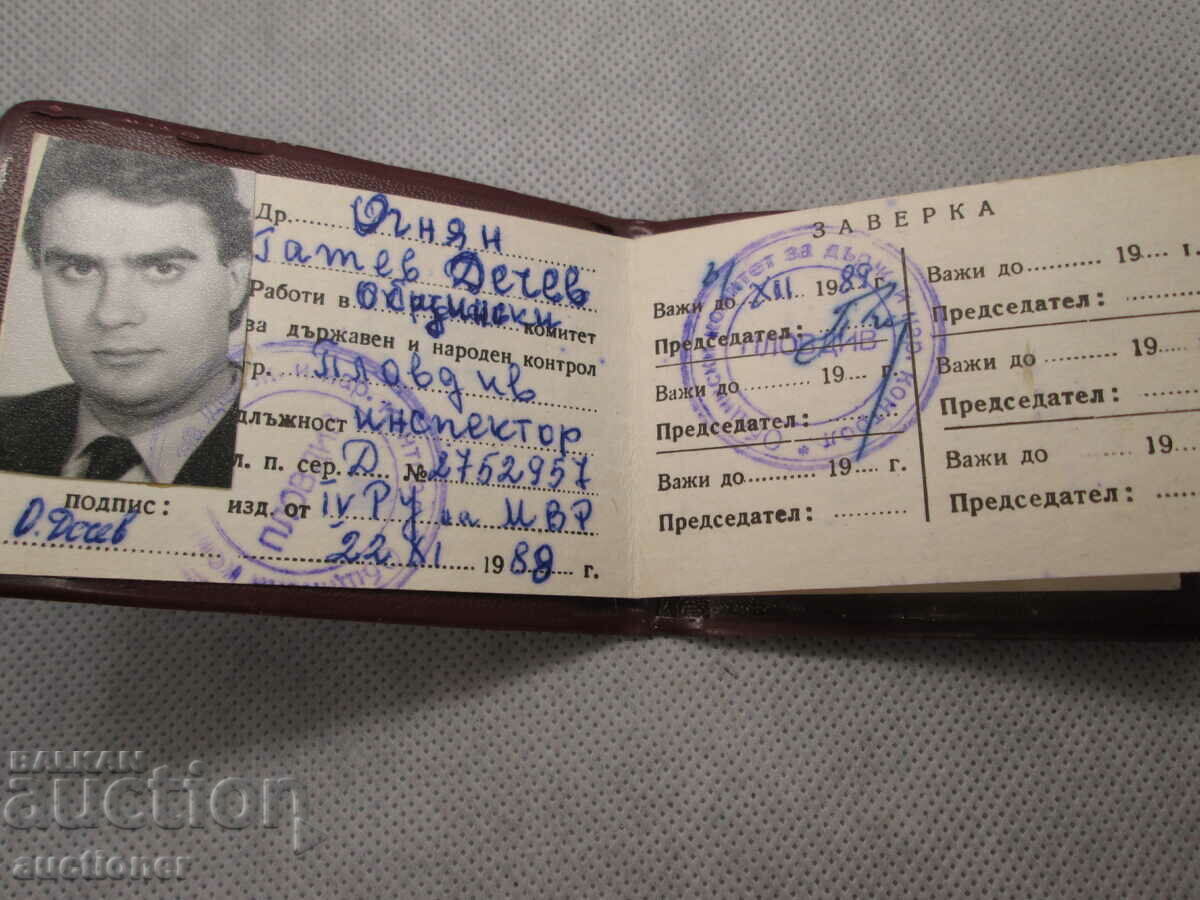 Др. Огнян
Гатев Дечев
Работи в Общински комитет
за държавен и народен контрол
гр. Пловдив
длъжност инспектор
л. п. сер. Д № 2752957
подпис: изд. от IV РУ на МВР
О. Дечев 22 XI 1988 г.
ЗАВЕРКА
Важи до XII 1989 г.
Председател:
Важи до 19 г.
Председател:
Важи до 19 г.
Председател:
Важи до 19 г.
Председател:
Важи до 19
Председател:
Важи до 19
Председател:
ПЛОВДИВ
BALKAN
auction
auctioner